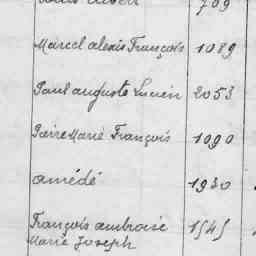 Marcel alexis François 1089
Paul auguste Lucien 2053
Pierre Marie François 1090
amédé 1930
François ambroise 1545
Marie Joseph